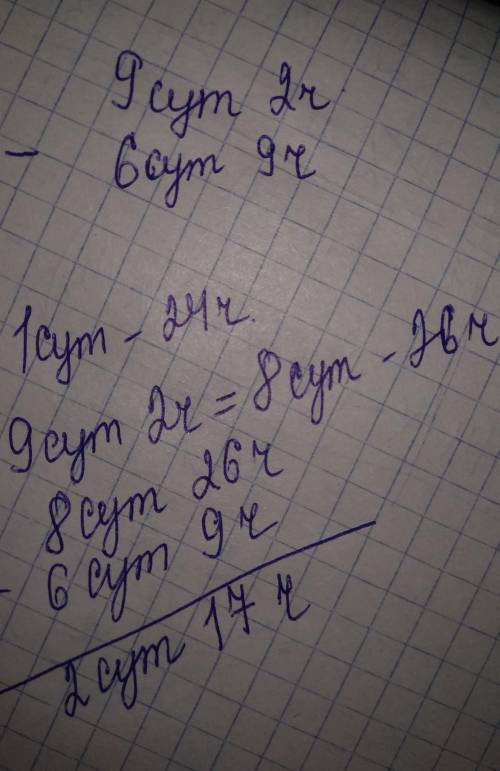 9 сут 2ч
- 6 сут 9ч
1 сут - 24ч.
9 сут 2ч = 8 сут - 26ч
8 сут 26ч
- 6 сут 9ч
2 сут 17 ч